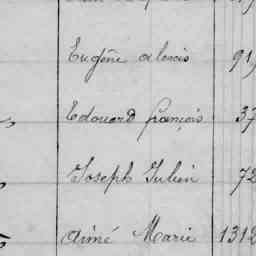 Eugène alexis 91
Edouard françois 37
Joseph Julien 72
aimé Marie 1312